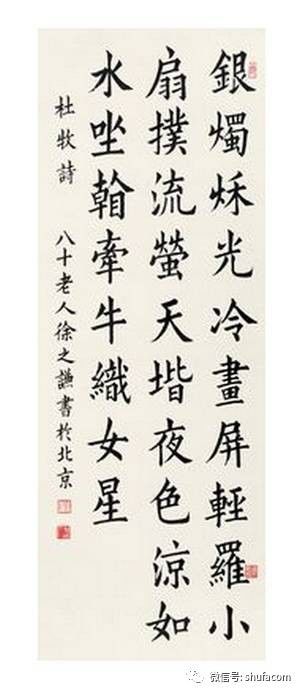 銀燭秌光冷畫屏輕羅小
扇撲流螢天堦夜色涼如
水坐看牽牛織女星
杜牧詩 八十老人徐之謙書於北京
微信号: shufacom